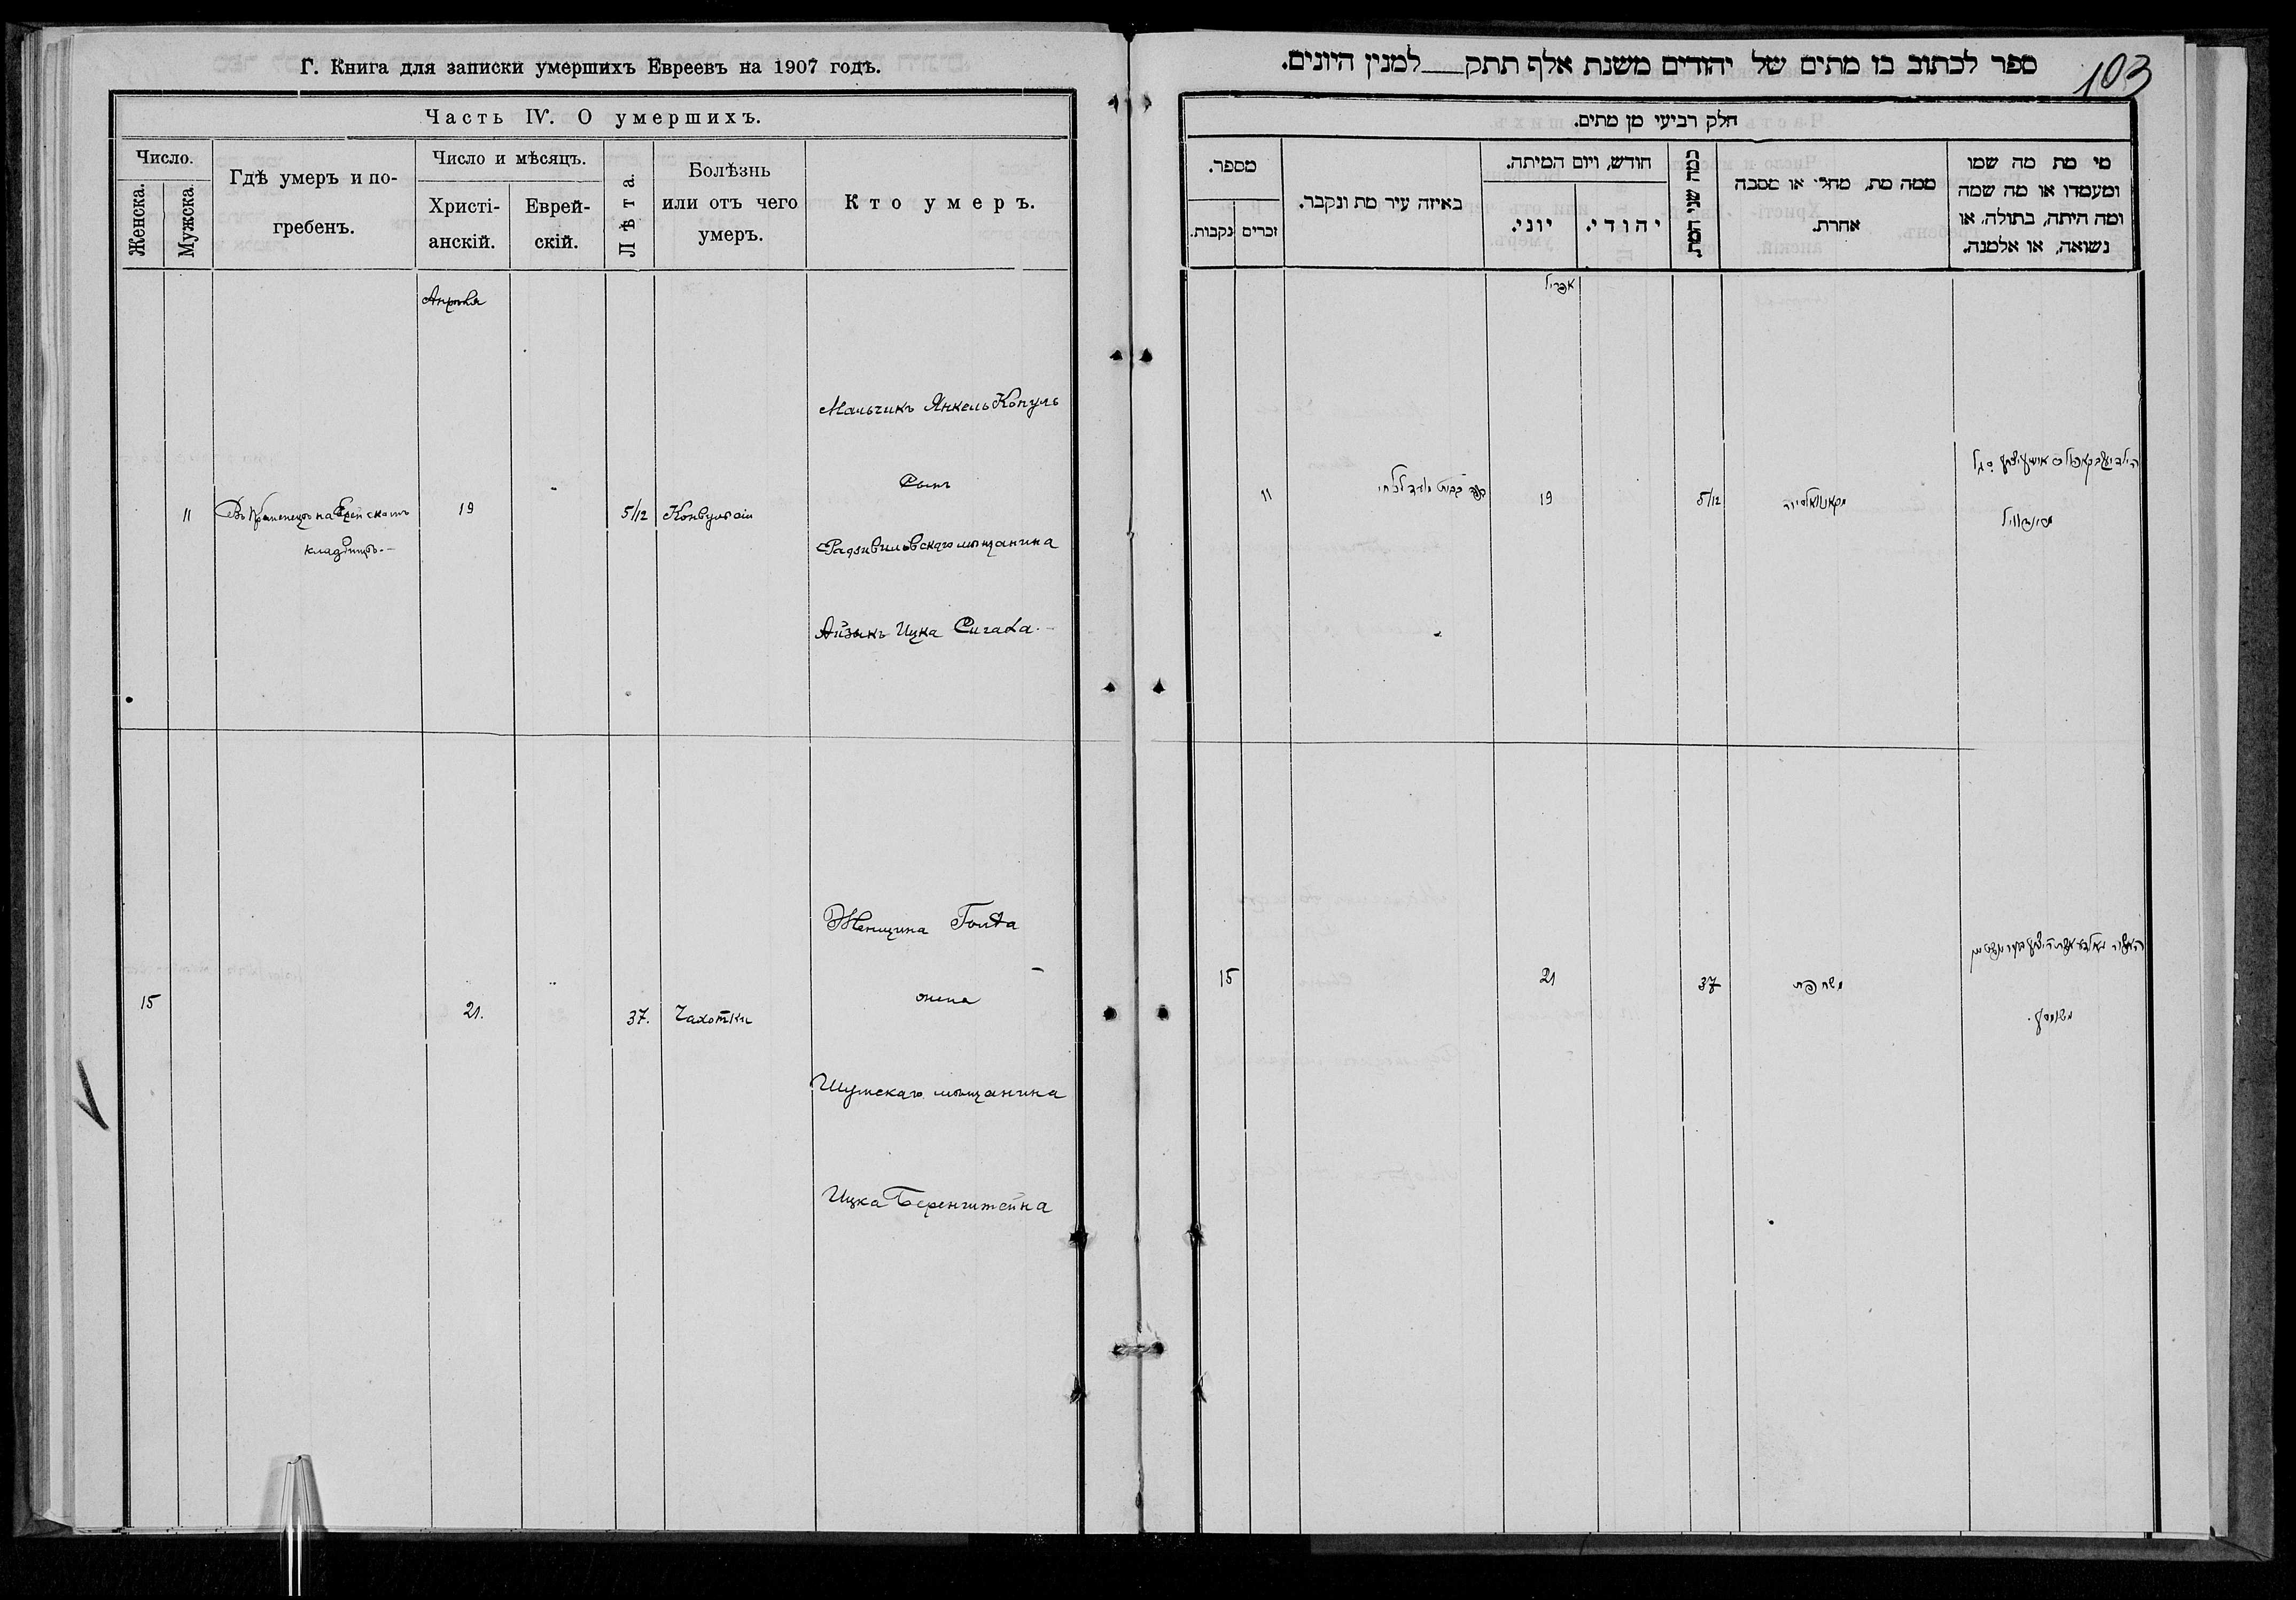 Г. Книга для записки умершихъ Евреевъ на 1907 годъ.
Часть IV. О умершихъ.
Число.
Женска.
Мужска.
Гдѣ умеръ и по-
гребенъ.
Число и мѣсяцъ.
Христі-
анскій.
Еврей-
скій.
Лѣта.
Болѣзнь
или отъ чего
умеръ.
Кто умеръ.
Апрѣля
Мальчикъ Янкель Копуль
Сынъ
11 Въ Кременецъ на Еврейскомъ 19 5/12 Конвульсіи
кладбищѣ.-
Радзивиловскаго мѣщанина
Айзыкъ Ицка Сигала.-
Женщина Голда
жена
15 21. 37. Чахотки
Шумскаго мѣщанина
Ицка Беренштейна
103
ספר לכתוב בו מתים של יהודים משנת אלף תתק למנין היונים.
חלק רביעי מן מתים.
מספר.
נקבות.
זכרים
באיזה עיר מת ונקבר.
חודש, ויום המיתה.
יוני.
יהודי.
כמה שני המת
ממה מת, מחלי או מסבה
אחרת.
מי מת מה שמו
ומעמדו או מה שמה
ומה היתה, בתולה, או
נשואה, או אלמנה.
אפריל
11
19
5/12
15
21
37